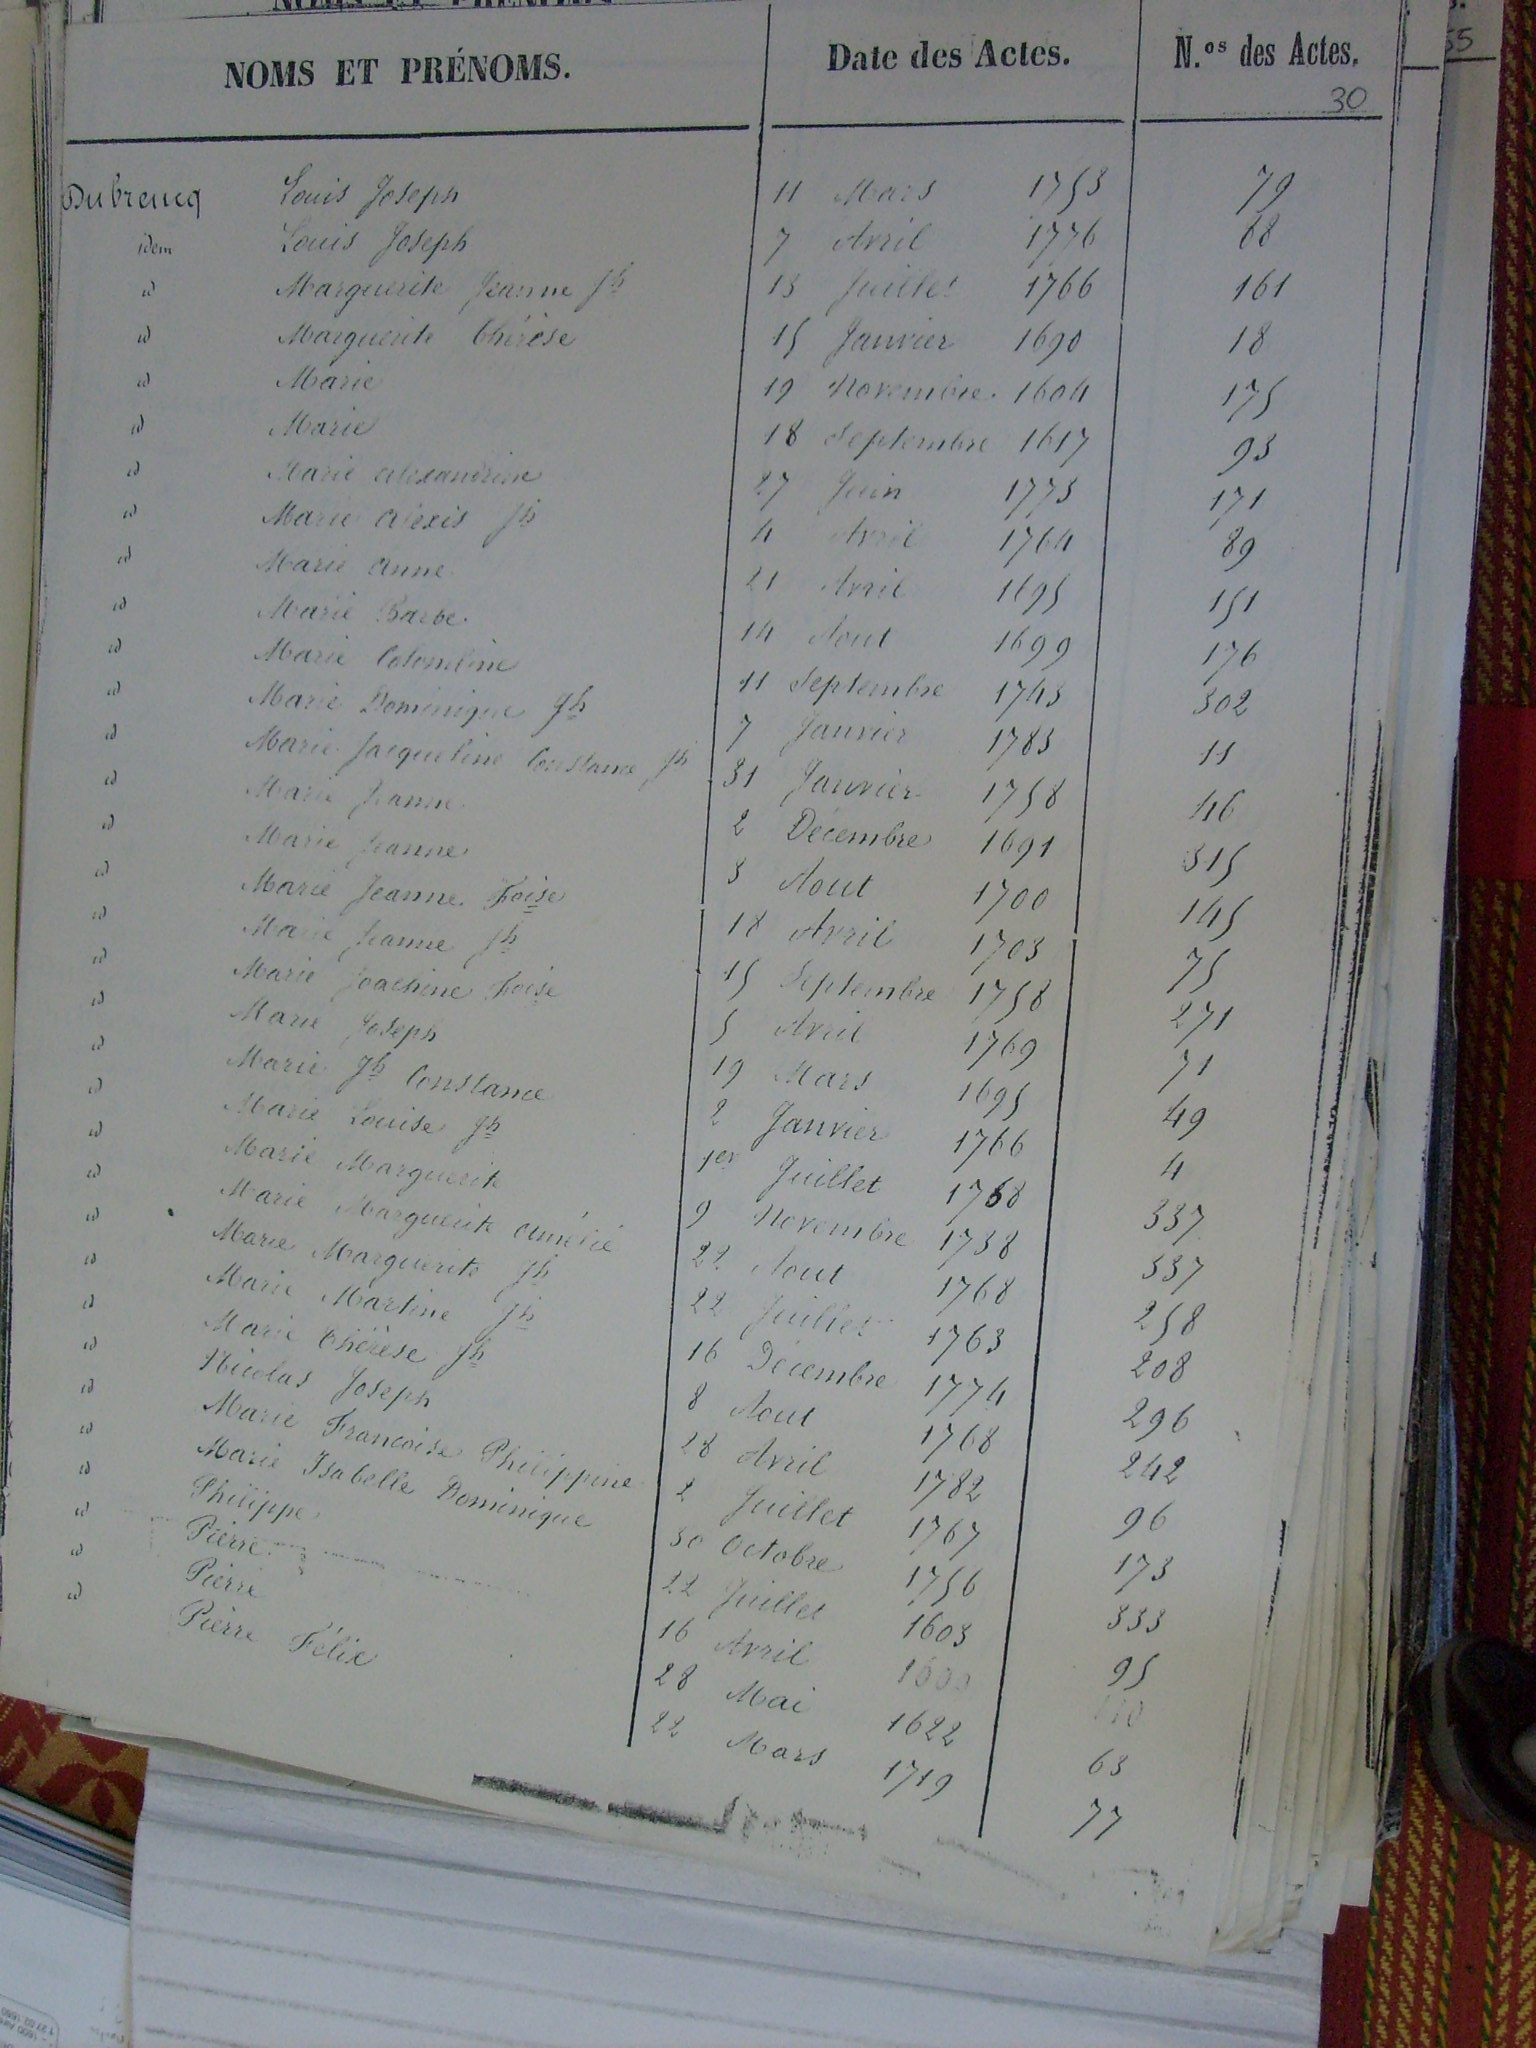 NOMS ET PRÉNOMS. Date des Actes. N.os des Actes.
55
30
Dubreucq Louis Joseph 11 Mars 1753 79
idem Louis Joseph 7 Avril 1776 88
id Marguerite Jeanne Jh 13 Juillet 1766 161
id Marguerite Thérèse 15 Janvier 1690 18
id Marie 19 Novembre. 1604 175
id Marie 18 Septembre 1617 93
id Marie Alexandrine 27 Juin 1773 171
id Marie Alexis Jh 4 Avril 1764 89
id Marie Anne 21 Avril 1695 151
id Marie Barbe. 14 Aout 1699 176
id Marie Colombine 11 Septembre 1743 302
id Marie Dominique Jh 7 Janvier 1783 11
id Marie Jacqueline Constance Jh 31 Janvier 1758 46
id Marie Jeanne 2 Décembre 1691 315
id Marie Jeanne 3 Aout 1700 145
id Marie Jeanne Foise 18 Avril 1703 75
id Marie Jeanne Jh 15 Septembre 1758 271
id Marie Joachine Foise 5 Avril 1769 71
id Marie Joseph 19 Mars 1695 49
id Marie Jh Constance 2 Janvier 1766 4
id Marie Louise Jh 1er Juillet 1768 337
id Marie Marguerite 9 Novembre 1738 337
id Marie Marguerite Amélie 22 Aout 1768 258
id Marie Marguerite Jh 22 Juillet 1763 208
id Marie Martine Jh 16 Décembre 1774 296
id Marie Thérèse Jh 8 Aout 1768 242
id Nicolas Joseph 28 Avril 1782 96
id Marie Francoise Philippine 2 Juillet 1767 173
id Marie Isabelle Dominique 30 Octobre 1756 333
id Philippe 22 Juillet 1603 95
id Pierre 16 Avril
id Pierre 28 Mai 1622 63
id Pierre Félix 22 Mars 1719 77